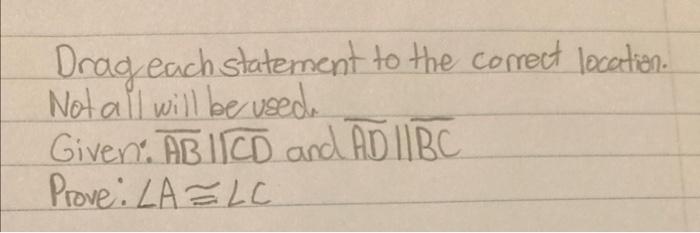 Drag each statement to the correct location.
Not all will be used.
Given: \overline{AB}||\overline{CD} and \overline{AD}||\overline{BC}
Prove: ∠A≅∠C